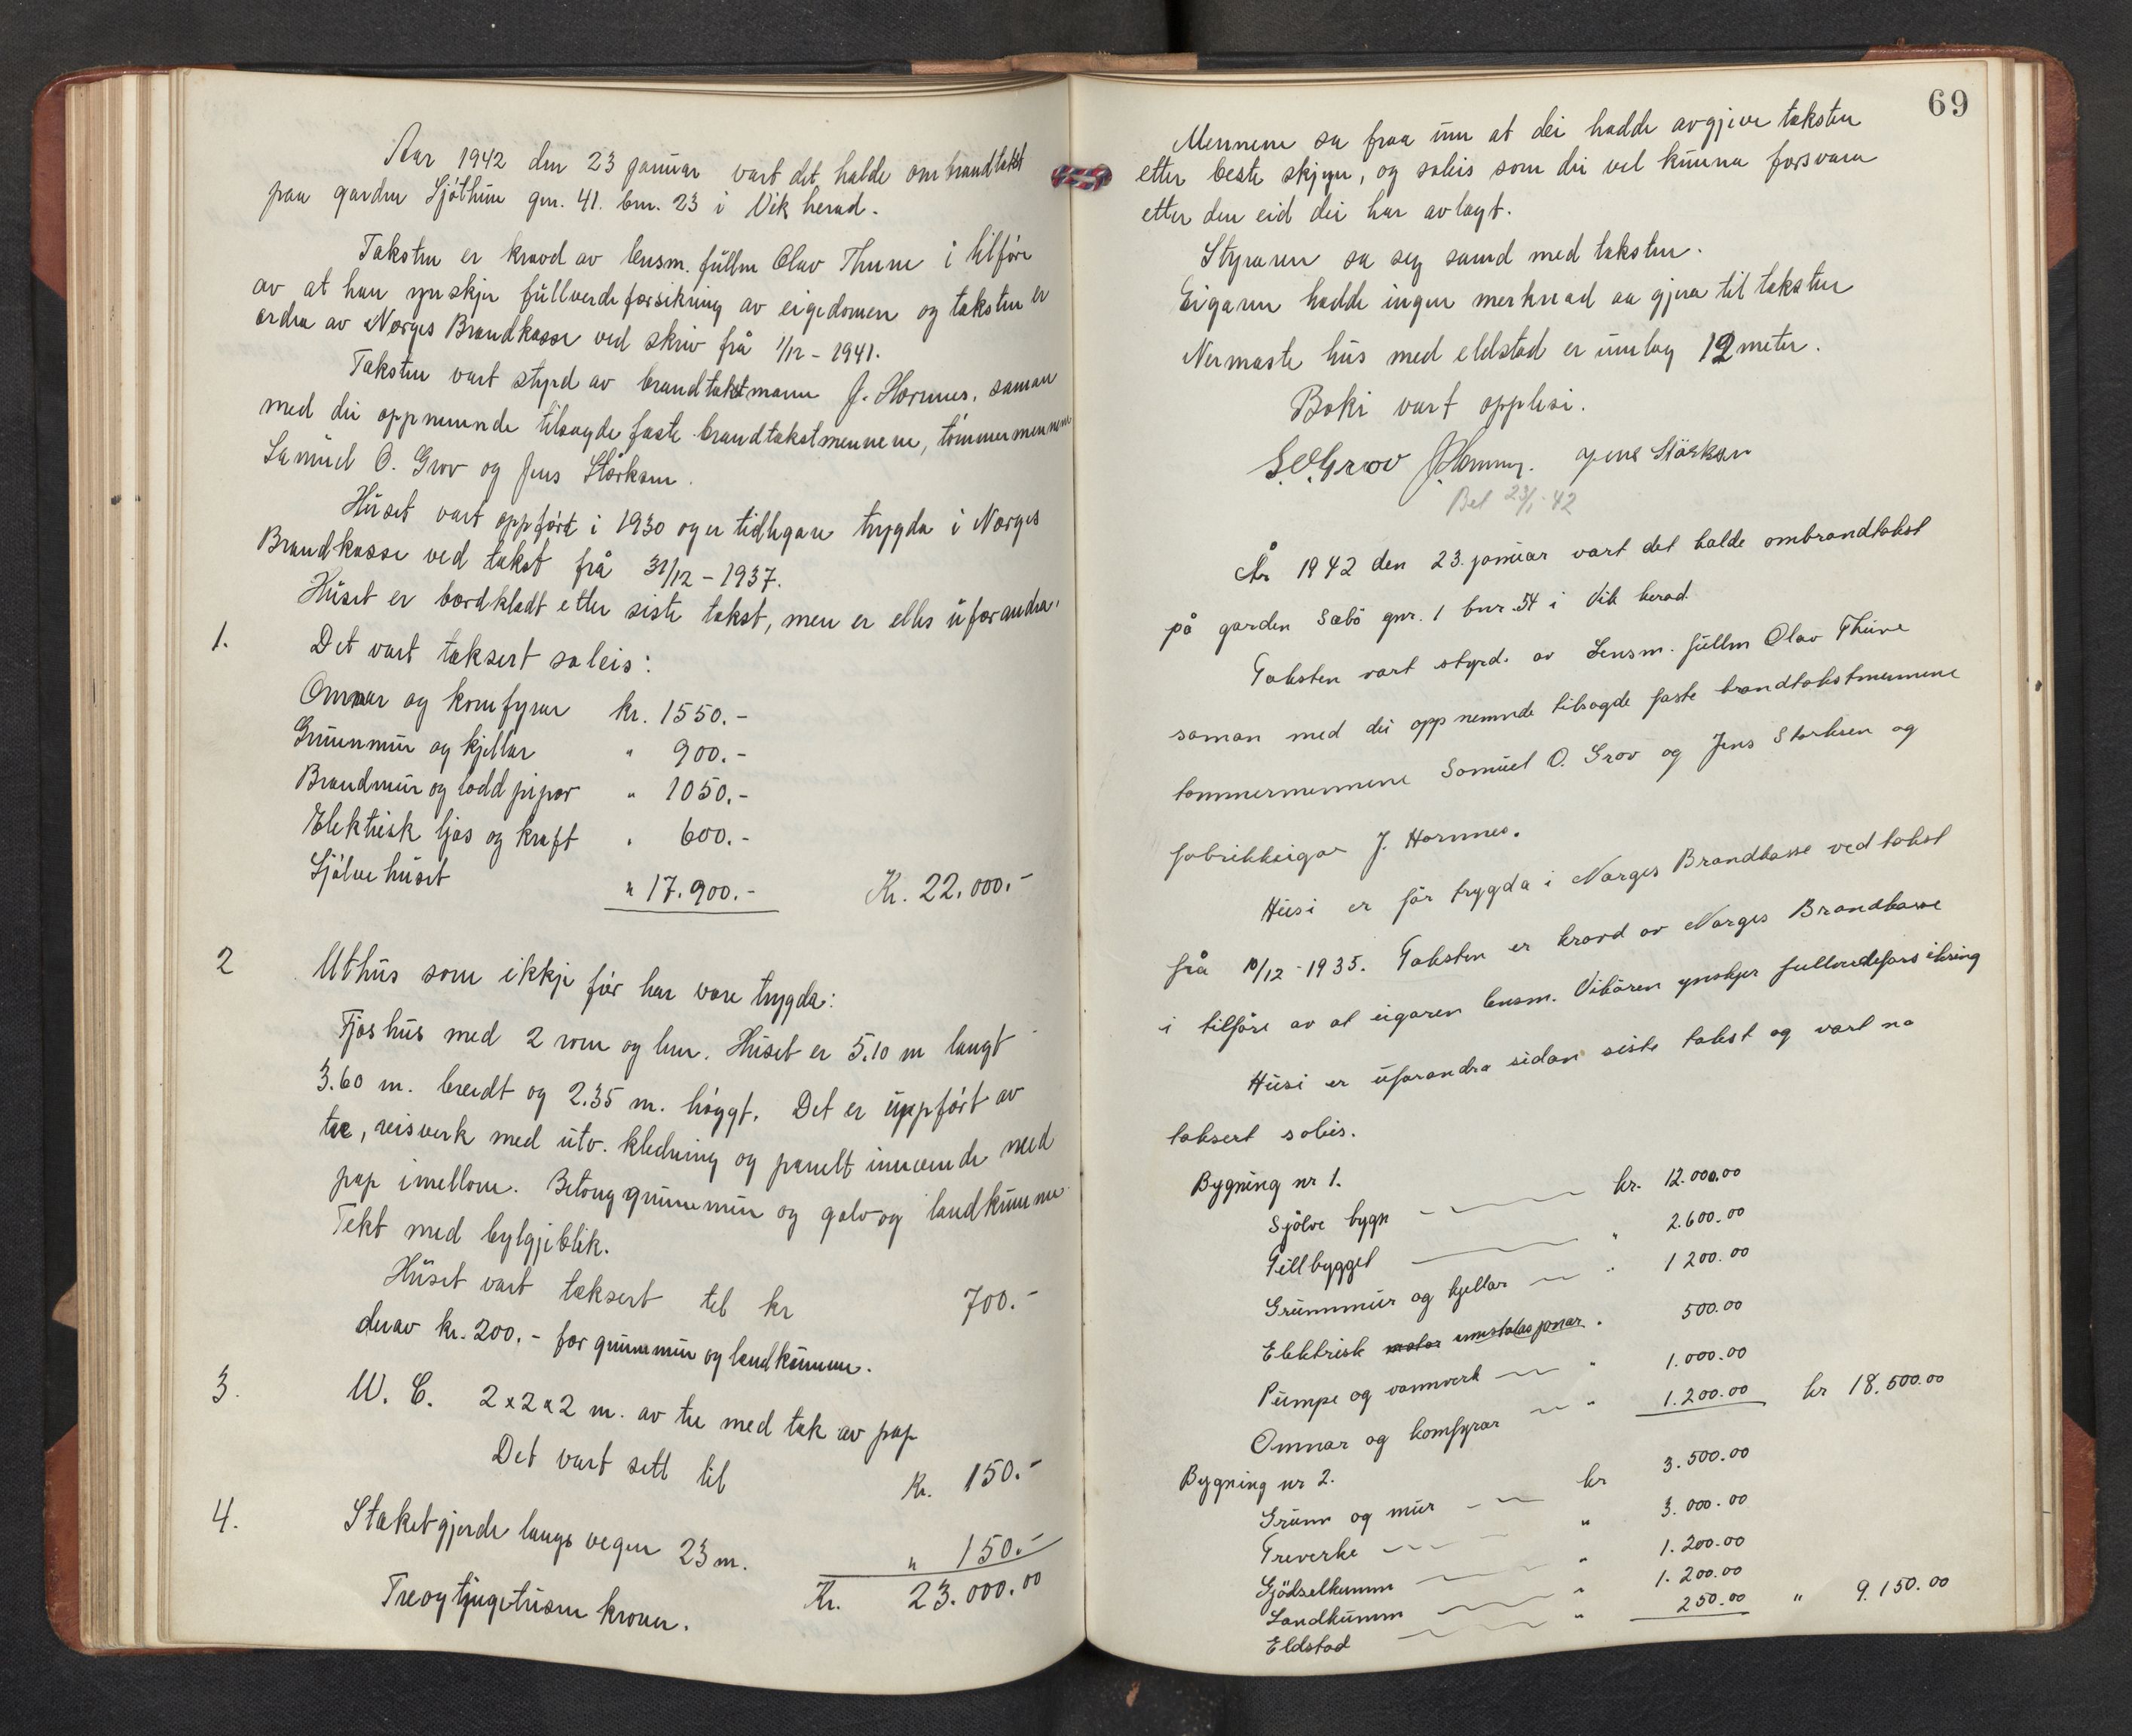 Aar 1942 den 23 januar vart det halde ombrandtakst
paa garden Sjøthun gnr. 41. bnr. 23 i Vik herad.
Taksten er kravd av lensm. fullm Olav Thune i tilføre
av at han ynskjer fullverdeforsikring av eigedomen og taksten er
ordra av Norges Brandkasse ved skriv frå 1/12 - 1941.
Taksten vart styrd av brandtakstmann J. Hornnes, saman
med dei oppnemnde tilsagde faste brandtakstmennene, tömmermennene
Samuel O. Grov og Jens Størksen.
Huset vart oppfört i 1930 og er tidlegare trygda i Norges
Brandkasse ved takst frå 31/12 - 1937.
Huset er bordkledt etter siste takst, men er elles uforandra.
1. Det vart taksert soleis:
Omnar og komfyrar kr. 1550.-
Grunnmur og kjellar " 900.-
Brandmur og lodd pipor " 1050.-
Elektrisk ljos og kraft " 600.-
Sjølve huset " 17.900.- Kr. 22.000.-
2 Uthus som ikkje før har vore trygda:
Fjøshus med 2 rom og lem. Huset er 5.10 m langt
3.60 m. breidt og 2.35 m. høgt. Det er uppfört av
tre, reisverk med utv. kledning og panelt innvende med
pap imellom. Betong grunnmur og golv og landkumme
Tekt med bylgjeblik.
Huset vart taksert til kr 700.-
derav kr. 200.- for grunnmur og landkumme.
3. W. C. 2 x 2 x 2 m. av tre med tak av pap
Det vart sett til Kr. 150.-
4. Staketgjerde langs vegen 23 m. " 150.-
Kr. 23.000.00
Treogtjugetusen kroner.
69
Mennene sa fraa um at dei hadde avgjeve taksten
etter beste skjyn, og soleis som dei vel kunna forsvara
etter den eid dei har avlagt.
Styraren sa seg samd med taksten.
Eigaren hadde ingen merknad aa gjera til taksten
Nermaste hus med eldstad er umlag 12 meter.
Boki vart opplesi.
S.O.Grov J. Hornnes. Jens Störksen
Bet 23/1-42
År 1942 den 23. januar vart det halde ombrandtakst
på garden Sæbö gnr. 1 bnr. 54 i Vik herad.
Taksten vart styrd. av Lensm. fullm Olav Thune
saman med dei oppnemnde tilsagde faste brandtakstmennene
tommermennene Samuel O. Grov og Jens Storksen og
fabrikkeigar J. Hornnes.
Husi er för trygda i Norges Brandkasse ved takst
frå 10/12 - 1935. Taksten er kravd av Norges Brandkasse
i tilföre av at eigaren lensm. Vikören ynskjer fullverdeforsikring
Husi er uforandra sidan siste takst og vart no
taksert soleis.
Bygning nr 1.
Sjölve bygn kr. 12.000.00
Tillbygget " 2.600.00
Grunnmur og kjellar " 1200.00
Elektrisk motor . 500.00
Pumpe og vannverk " 1.000.00
Omnar og komfyrar " 1.200.00 kr 18.500.00
Bygning nr 2.
Grunn og mur kr 3.500.00
Treverke " 3.000.00
Gjödselkumm " 1.200.00
Landkumm " 1.200.00
Eldstad " 250.00 " 9.150.00